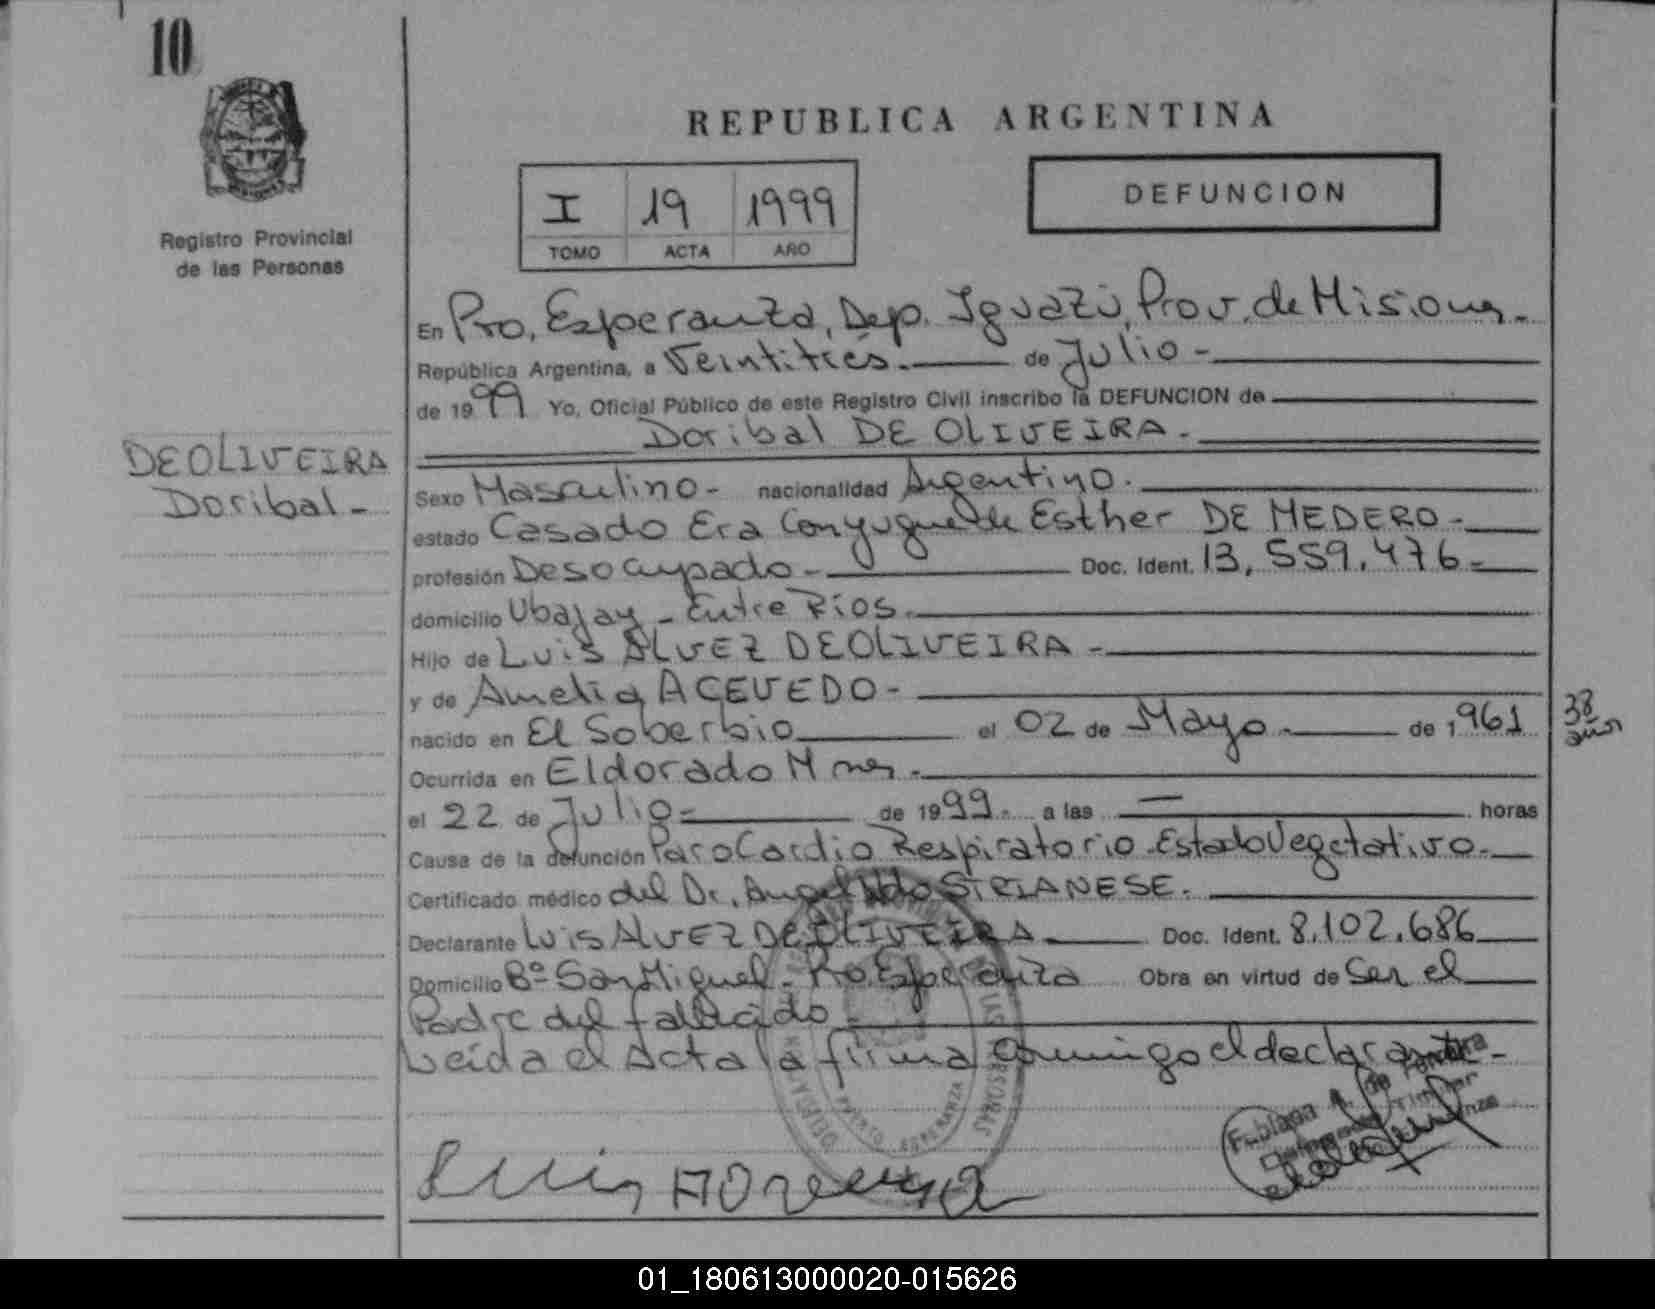 10
REPUBLICA ARGENTINA
I 19 1999
TOMO ACTA AÑO
DEFUNCION
Registro Provincial
de las Personas
En Pto. Esperanza, Dep. Iguazú, Prov. de Misiones.-
República Argentina, a Veintitrés.- de Julio -
de 1999 Yo, Oficial Público de este Registro Civil inscribo la DEFUNCION de
Doribal DE OLIVEIRA.-
DEOLIVEIRA
Doribal -
Sexo Masculino - nacionalidad Argentino.
estado Casado Era Conyugue de Esther DE MEDERO -
profesión Desocupado - Doc. Ident. 13,559.476-
domicilio Ubajay - Entre Ríos.
Hijo de Luis ALVEZ DEOLIVEIRA -
y de Amelia ACEVEDO -
nacido en El Soberbio el 02 de Mayo.- de 1961
38
años
Ocurrida en Eldorado Mnes.
el 22 de Julio - de 1999.- a las — horas
Causa de la defunción Paro Cardio Respiratorio - Estado Vegetativo.-
Certificado médico del Dr. Angel STRIANESE.
Declarante Luis ALVEZ DEOLIVEIRA Doc. Ident. 8.102.686
Domicilio Bº San Miguel - Pto. Esperanza Obra en virtud de Ser el
Padre del fallecido.-
Leída el Acta la firma conmigo el declarante -
PUERTO ESPERANZA
Fabiana A. de
01_180613000020-015626